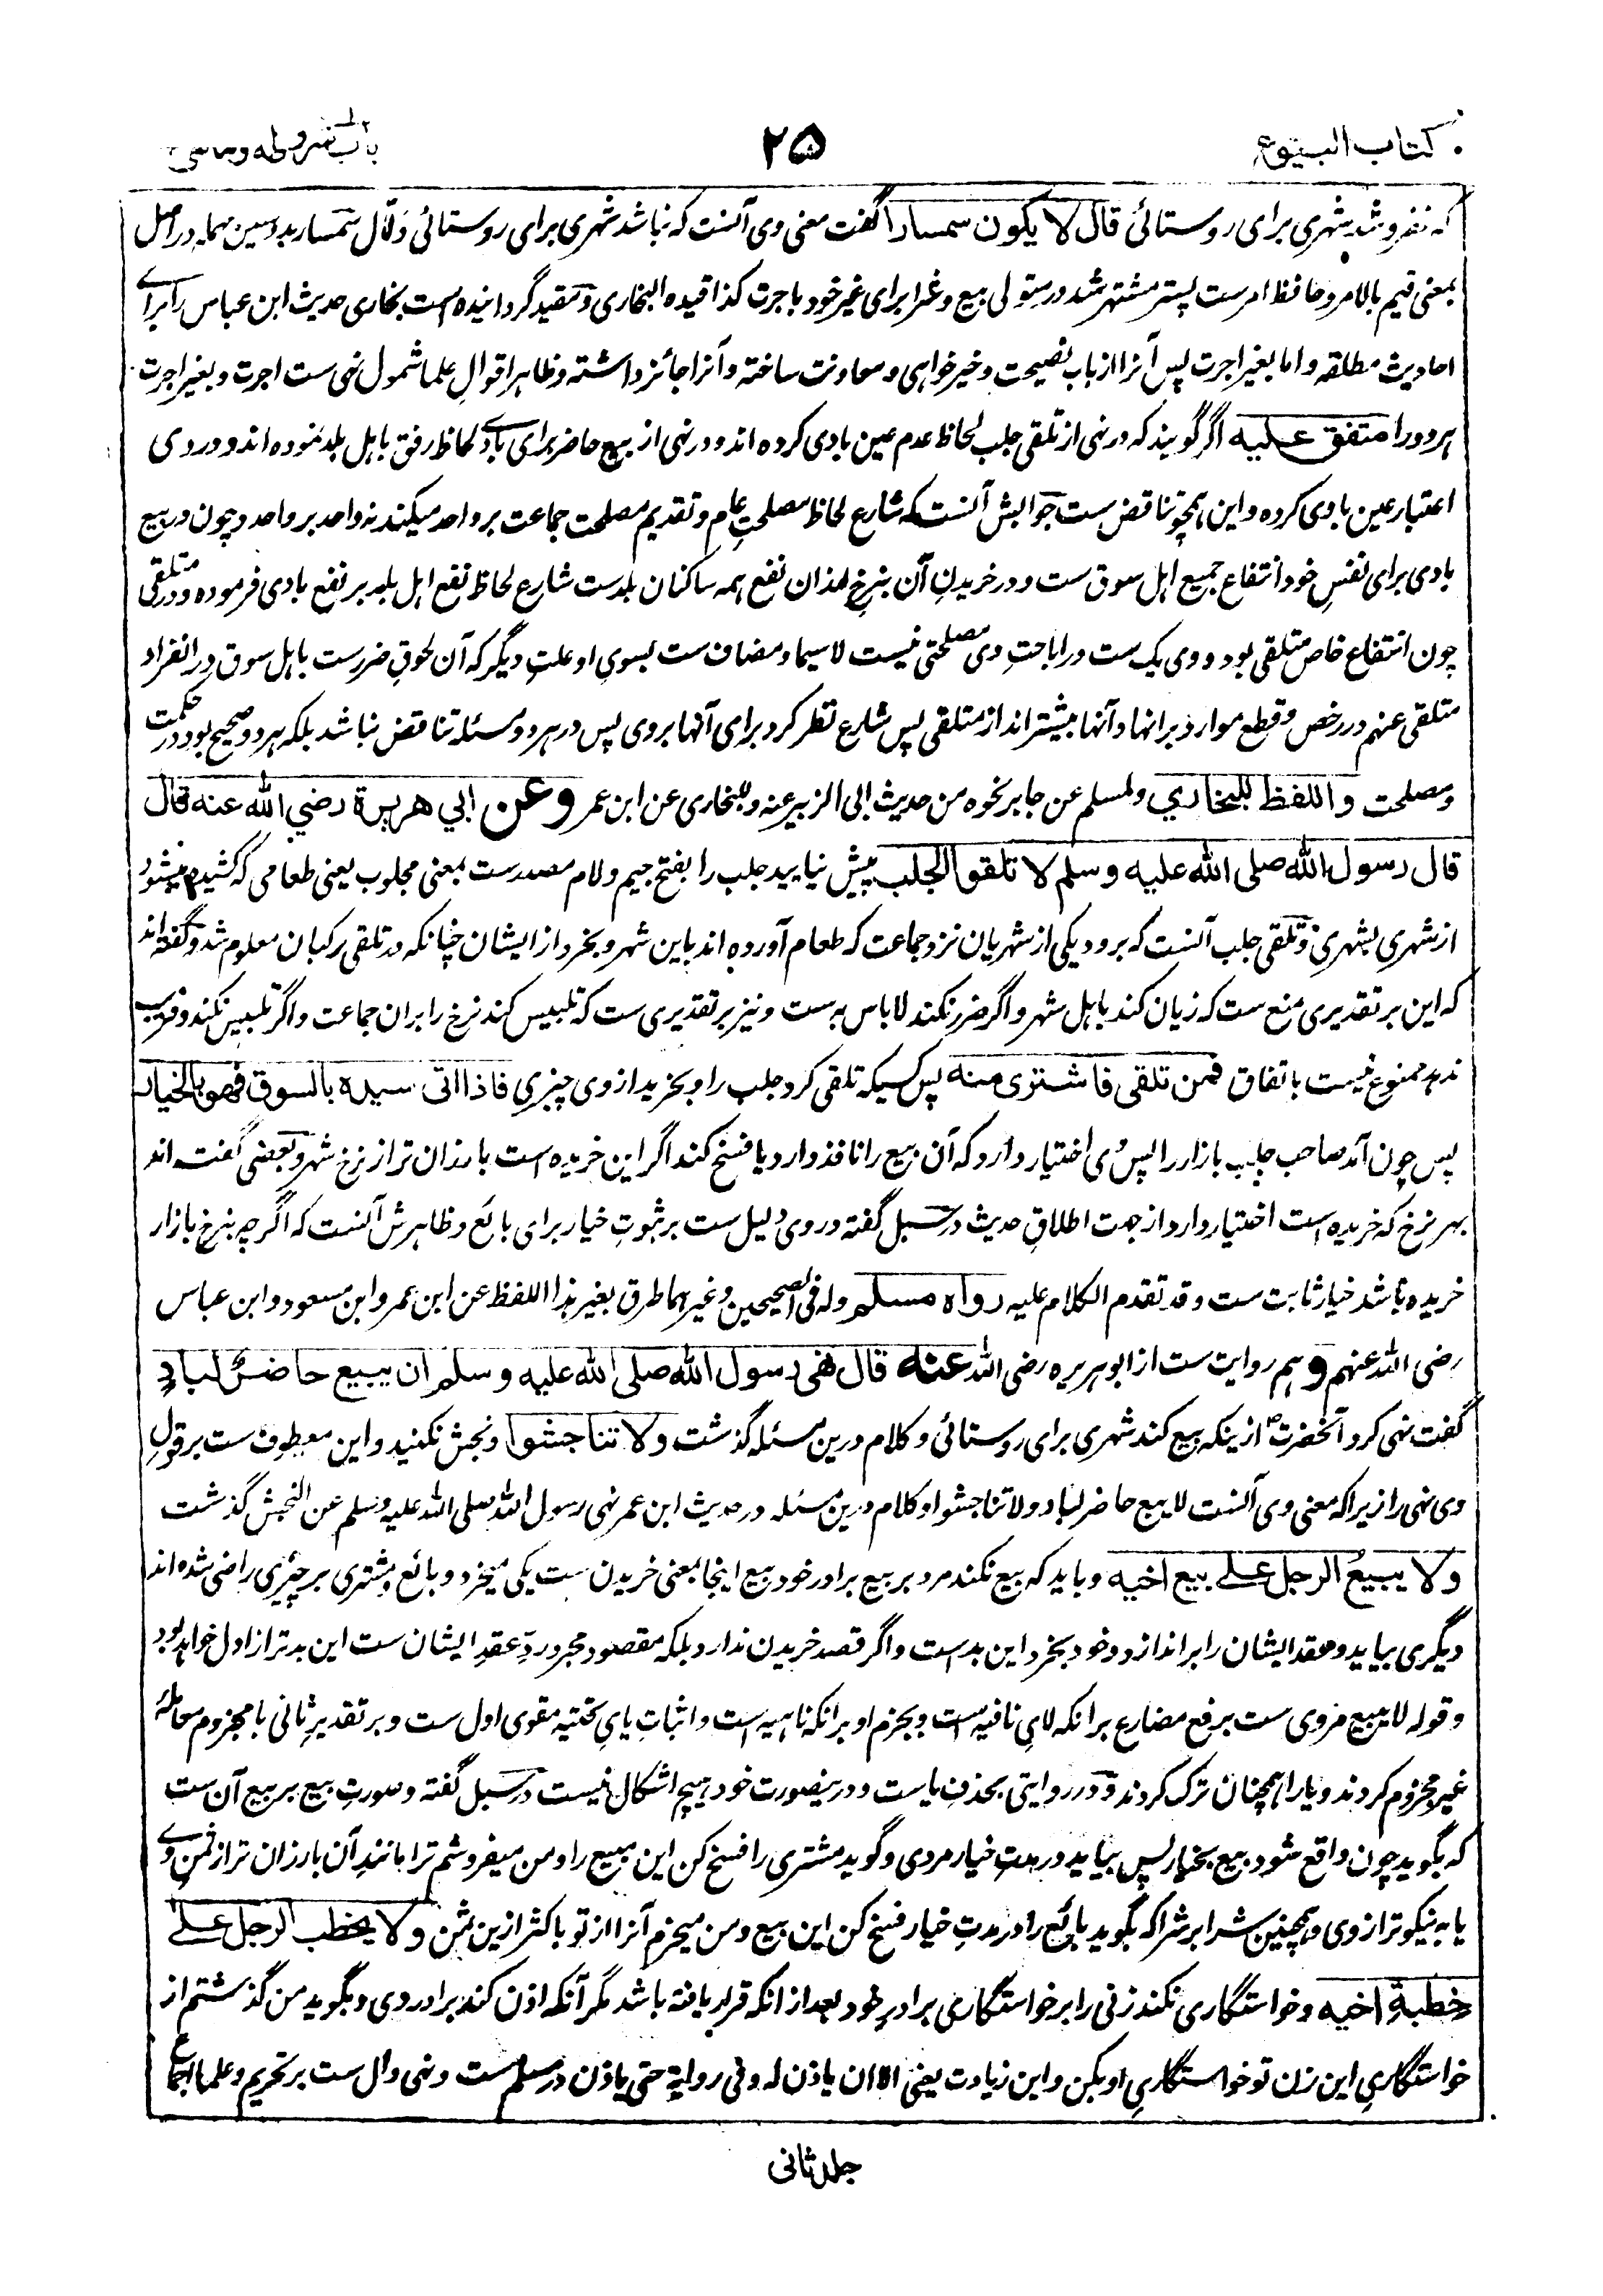 کتاب البیوع
۲۵
باب شروطه وما نهی
که نفروشد شهری برای روستائی قال لا یکون سمسارا گفت معنی وی آنست که نباشد شهری برای روستائی دلّال سمسار بدو سین مهمله در اصل
بمعنی قیم بالامر و حافظ امرست پستر مشتهر شد در متولی بیع و شرا برای غیر خود باجرت کذا قیده البخاری و مقید گردانیده است بخاری حدیث ابن عباس را برای
احادیث مطلقه و اما بغیر اجرت پس آنرا از باب نصیحت و خیرخواهی و معاونت ساخته و آنرا جائز داشته و ظاهر اقوالِ علما شمول نهی ست اجرت و بغیر اجرت
هردو را متفق علیه اگر گویند که در نهی از تلقی جلب لحاظ عدم غبن بادی کرده اند و در نهی از بیع حاضر برای بادی لحاظ رفق باهل بلد نموده اند و در وی
اعتبار غبن بادی کرده و این همچو تناقض ست جوابش آنست که شارع لحاظ مصلحتِ عام و تقدیم مصلحت جماعت بر واحد میکند نه واحد بر واحد و چون در بیع
بادی برای نفسِ خود انتفاع جمیع اهل سوق ست و در خریدنِ آن بنرخِ ارزان نفع همه ساکنان بلدست شارع لحاظ نفع اهل بلد بر نفع بادی فرموده و در تلقی
چون انتفاع خاص متلقی بود و وی یک ست در اباحتِ وی مصلحتی نیست لا سیما و مضاف ست بسوی او علتِ دیگر که آن لحوقِ ضررست باهل سوق در انفراد
متلقی عنهم در رخص و قطع موارد بر انها و آنها بیشتر اند از متلقی پس شارع نظر کرد برای آنها بر وی پس در هر دو مسئله تناقض نباشد بلکه هر دو صحیح بود در حکمت
و مصلحت واللفظ للبخاري ولمسلم عن جابر نحوه من حدیث ابی الزبیر عنه و للبخاری عن ابن عمر وعن ابي هریرة رضي الله عنه قال
قال رسول الله صلی الله علیه وسلم لا تلقوا الجلب پیش نیایید جلب را بفتح جیم و لام مصدرست بمعنی مجلوب یعنی طعامی که کشیده میشود
از شهری بشهری و تلقی جلب آنست که برود یکی از شهریان نزد جماعت که طعام آورده اند باین شهر و بخرد از ایشان چنانکه در تلقی رکبان معلوم شد و گفته اند
که این بر تقدیری منع ست که زیان کند باهل شهر و اگر ضرر نکند لا باس به ست و نیز بر تقدیری ست که تلبیس کند نرخ را بران جماعت و اگر تلبیس نکند و فریب
ندهد ممنوع نیست باتفاق فمن تلقی فاشتری منه پس کسیکه تلقی کرد جلب را و بخرید از وی چیزی فاذا اتی سیده بالسوق فهو بالخیار
پس چون آمد صاحب جلب بازار را پس وی اختیار دارد که آن بیع را نافذ دارد یا فسخ کند اگر این خریده است بارزان تر از نرخ شهر و بعضی گفته اند
بهر نرخ که خریده است اختیار دارد از جهت اطلاقِ حدیث در سبل گفته در وی دلیل ست بر ثبوتِ خیار برای بائع و ظاهرش آنست که اگرچه بنرخِ بازار
خریده باشد خیار ثابت ست و قد تقدم الکلام علیه رواه مسلم وله فی الصحیحین و غیرهما طرق بغیر هذا اللفظ عن ابن عمر و ابن مسعود و ابن عباس
رضی الله عنهم و هم روایت ست از ابو هریره رضی الله عنه قال نهی رسول الله صلی الله علیه وسلم ان یبیع حاضرٌ لبادٍ
گفت نهی کرد آنحضرت ص ازینکه بیع کند شهری برای روستائی و کلام درین مسئله گذشت ولا تناجشوا و نجش نکنید و این معطوف ست بر قولِ
وی نهی را زیرا که معنی وی آنست لا یبیع حاضر لباد ولا تناجشوا و کلام درین مسئله در حدیث ابن عمر نهی رسول الله صلی الله علیه وسلم عن النجش گذشت
ولا یبیعُ الرجل علے بیع اخیه و باید که بیع نکند مرد بر بیع برادر خود بیع اینجا بمعنی خریدن ست یکی میخرد و بائع و مشتری بر چیزی راضی شده اند
دیگری بیاید و عقد ایشان را بر اندازد و خود بخرد این بدست و اگر قصد خریدن ندارد بلکه مقصود مجرد ردِّ عقدِ ایشان ست این بدتر از اول خواهد بود
و قوله لا یبیع مروی ست برفع مضارع برانکه لای نافیه است و بجزم او برانکه ناهیه است و اثباتِ یایِ تحتیه مقوی اول ست و بر تقدیرِ ثانی با مجزوم معاملهٔ
غیر مجزوم کردند و یا را همچنان ترک کردند و در روایتی بحذفِ یا ست و درینصورت خود هیچ اشکال نیست در سبل گفته و صورتِ بیع بر بیع آن ست
که بگوید چون واقع شود بیع بخیار پس بیاید در مدتِ خیار مردی و گوید مشتری را فسخ کن این بیع را و من میفروشم ترا مانندِ آن بارزان تر از ثمنِ وے
یا به نیکوتر از وی و همچنین شرا بر شرا که بگوید بائع را در مدتِ خیار فسخ کن این بیع و من میخرم آنرا از تو باکثر ازین ثمن ولا یخطب الرجل علے
خطبةِ اخیه و خواستگاری نکند زنی را بر خواستگاری برادرِ خود بعد از انکه قرار یافته باشد مگر آنکه اذن کند برادر وی و بگوید من گذشتم از
خواستگاریِ این زن تو خواستگاریِ او بکن و این زیادت یعنی الا ان یاذن له و فی روایة حتی یاذن در مسلم ست و نهی دال ست بر تحریم و علما اجماع
جلد ثانی